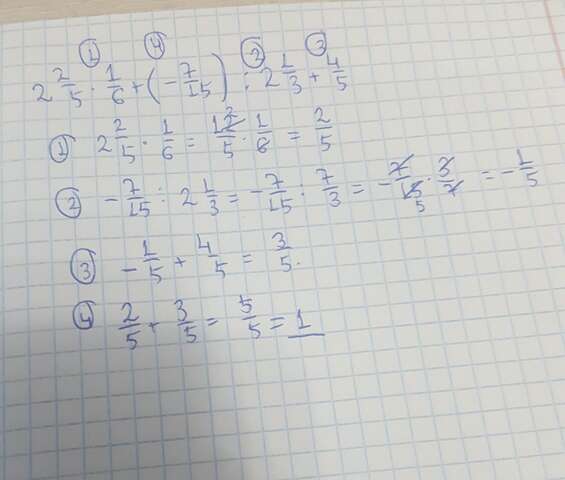 ① ④ ② ③
2 2/5 · 1/6 + (- 7/15) : 2 1/3 + 4/5
① 2 2/5 · 1/6 = 12/5 · 1/6 = 2/5
② - 7/15 : 2 1/3 = - 7/15 : 7/3 = - 7/15 · 3/7 = - 1/5
③ - 1/5 + 4/5 = 3/5.
④ 2/5 + 3/5 = 5/5 = 1